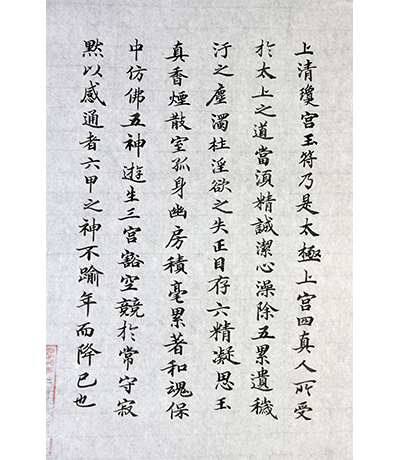 上清瓊宮玉符乃是太極上宮四真人所受
於太上之道當須精誠潔心澡除五累遺穢
汙之塵濁杜淫欲之失正目存六精凝思玉
真香煙散室孤身幽房積毫累著和魂保
中仿佛五神遊生三宮豁空競於常守寂
默以感通者六甲之神不踰年而降已也